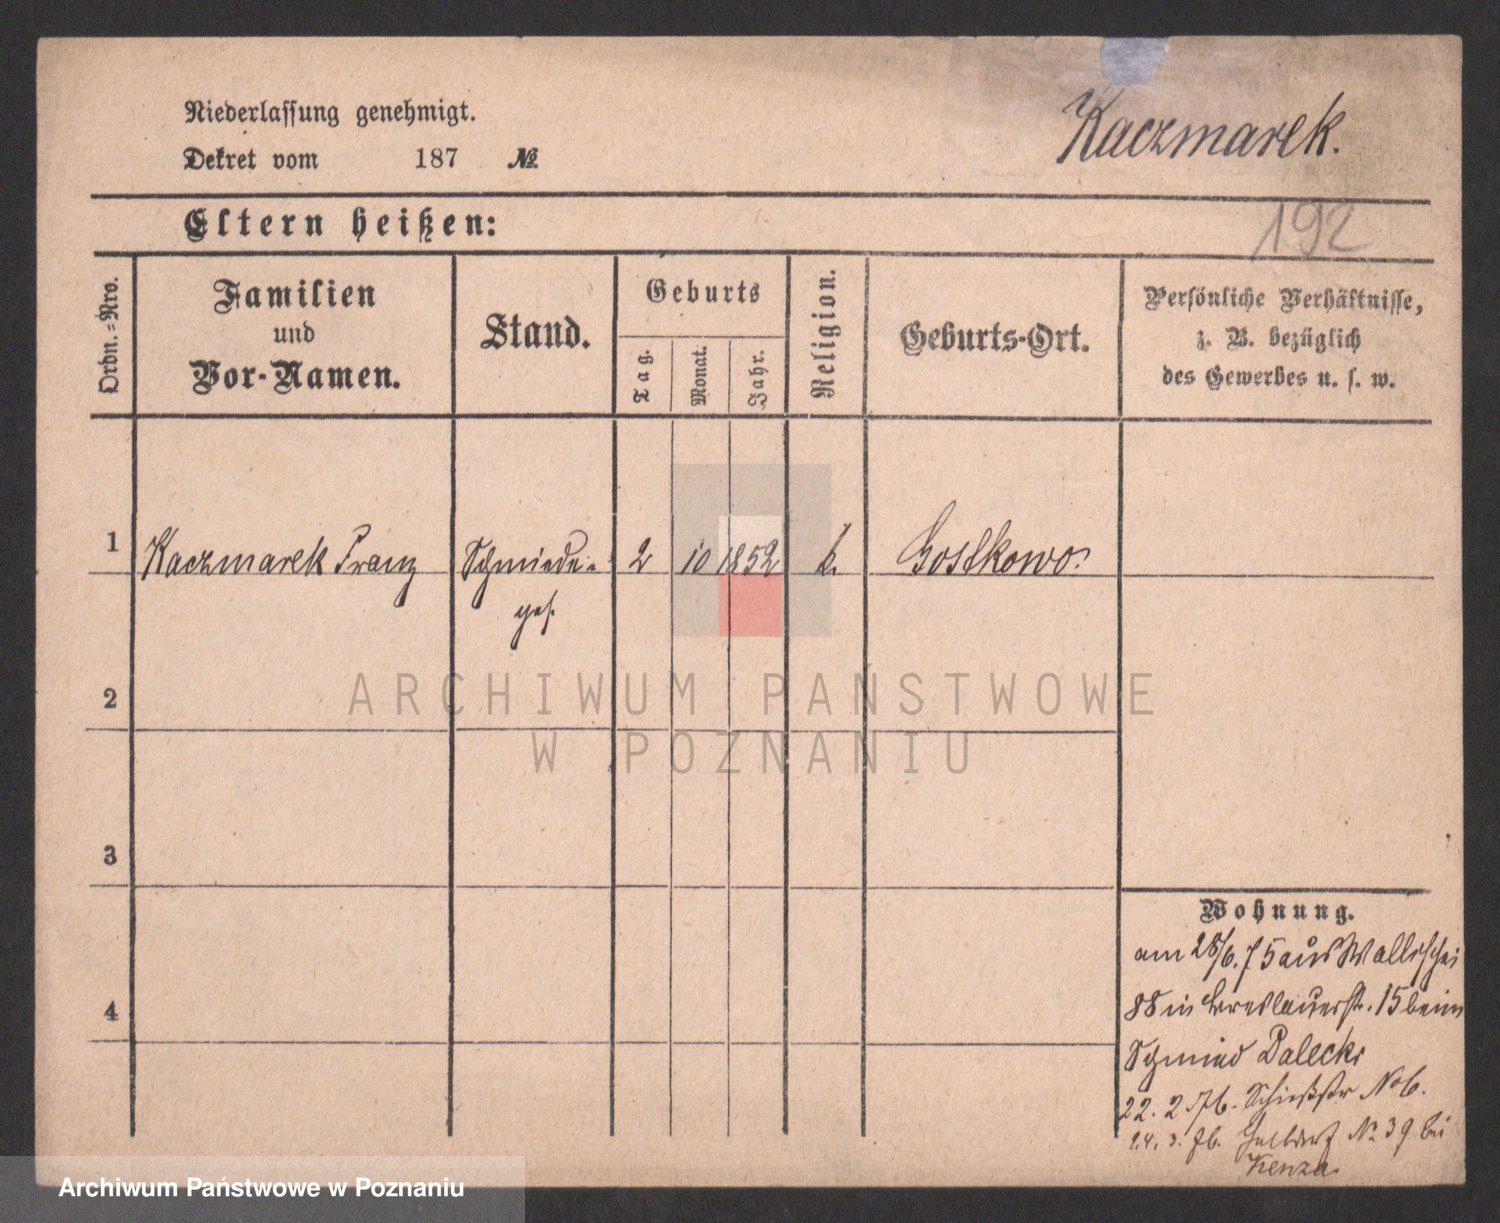 Niederlassung genehmigt.
Dekret vom 187 №
Kaczmarek.
Eltern heißen:
192
Ordn.=Nro.
Familien
und
Vor-Namen.
Stand.
Geburts
Tag.
Monat.
Jahr.
Religion.
Geburts-Ort.
Persönliche Verhältnisse,
z. B. bezüglich
des Gewerbes u. s. w.
1 Kaczmarek Franz Schmiede- 2 10 1852 k. Gostkowo.
ges.
2
3
4
Wohnung.
am 28/6. 75 aus Wallischei
88 in Breslauerstr. 15 beim
Schmied Dalecki
22. 2. 76. Schießstr No 6.
24. 3. 76. № 39 bei
Kenza.
ARCHIWUM PAŃSTWOWE
W POZNANIU
Archiwum Państwowe w Poznaniu